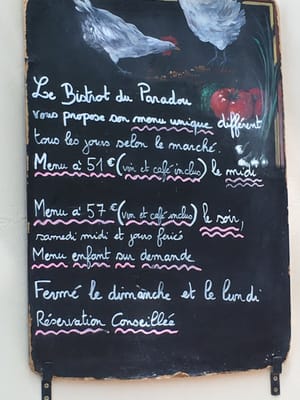 Le Bistrot du Paradou
vous propose son menu unique différent
tous les jours selon le marché.
Menu à 51€ (vin et café inclus) le midi
Menu à 57€ (vin et café inclus) le soir,
samedi midi et jours fériés
Menu enfant sur demande
Fermé le dimanche et le lundi
Réservation Conseillée